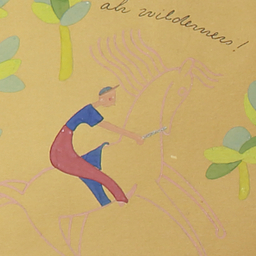 ah wilderness!